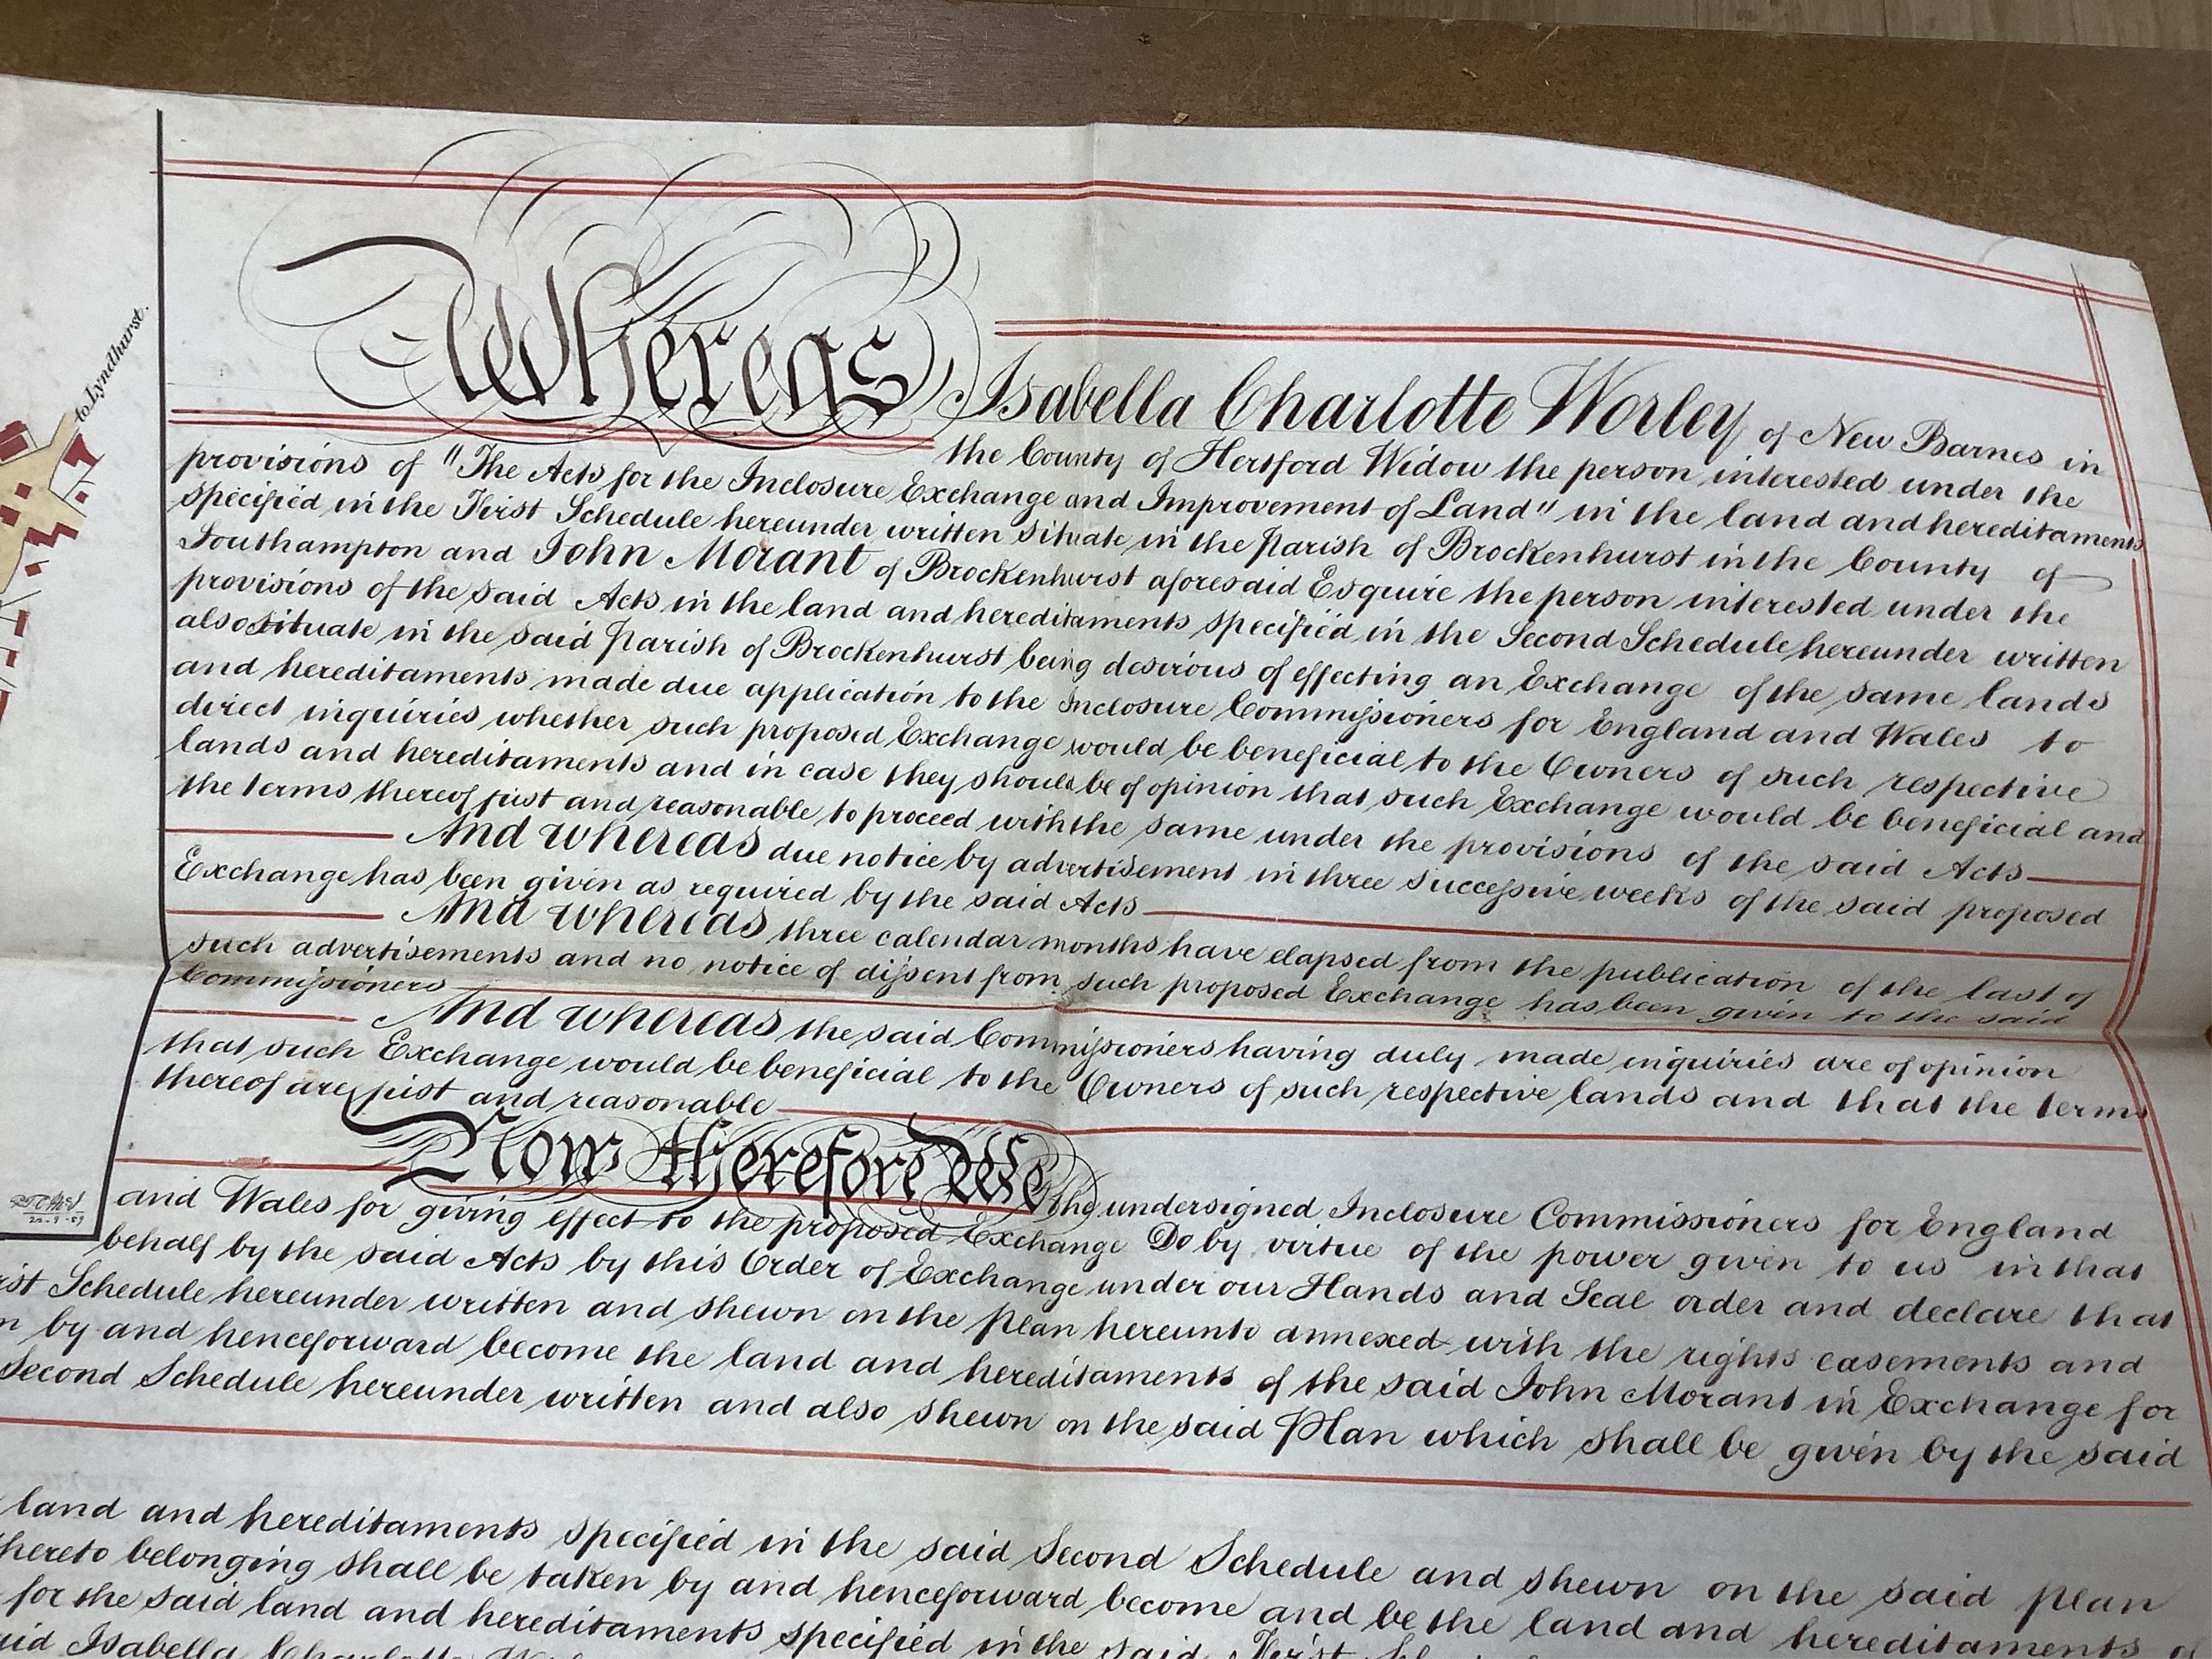 to Lyndhurst.
Whereas Isabella Charlotte Worley of New Barnes in
the County of Hertford Widow the person interested under the
provisions of "The Acts for the Inclosure Exchange and Improvement of Land" in the land and hereditaments
specified in the First Schedule hereunder written situate in the Parish of Brockenhurst in the County of
Southampton and John Morant of Brockenhurst aforesaid Esquire the person interested under the
provisions of the said Acts in the land and hereditaments specified in the Second Schedule hereunder written
also situate in the said Parish of Brockenhurst being desirous of effecting an Exchange of the same lands
and hereditaments made due application to the Inclosure Commissioners for England and Wales to
direct inquiries whether such proposed Exchange would be beneficial to the Owners of such respective
lands and hereditaments and in case they should be of opinion that such Exchange would be beneficial and
the terms thereof just and reasonable to proceed with the same under the provisions of the said Acts
And whereas due notice by advertisement in three successive weeks of the said proposed
Exchange has been given as required by the said Acts
And whereas three calendar months have elapsed from the publication of the last of
such advertisements and no notice of dissent from such proposed Exchange has been given to the said
Commissioners
And whereas the said Commissioners having duly made inquiries are of opinion
that such Exchange would be beneficial to the Owners of such respective lands and that the terms
thereof are just and reasonable
Now therefore We the undersigned Inclosure Commissioners for England
and Wales for giving effect to the proposed Exchange Do by virtue of the power given to us in that
behalf by the said Acts by this Order of Exchange under our Hands and Seal order and declare that
Schedule hereunder written and shewn on the plan hereunto annexed with the rights easements and
by and henceforward become the land and hereditaments of the said John Morant in Exchange for
Second Schedule hereunder written and also shewn on the said Plan which shall be given by the said
land and hereditaments specified in the said Second Schedule and shewn on the said plan
thereto belonging shall be taken by and henceforward become and be the land and hereditaments of
for the said land and hereditaments specified in the said First
Isabella Charlotte